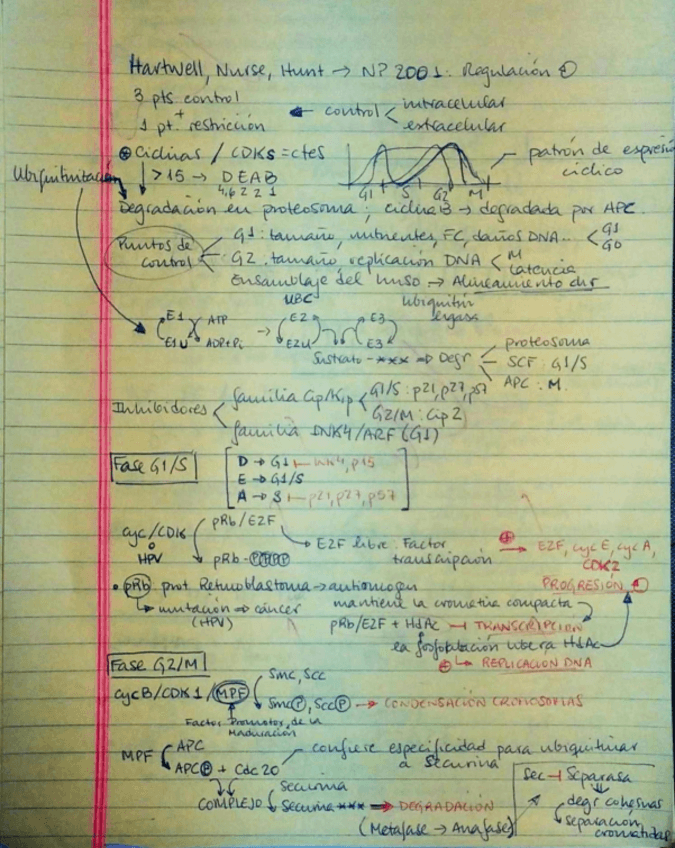 Hartwell, Nurse, Hunt → NP 2001: Regulación
3 pts control
1 pt. restricción ← control < intracelular
extracelular
⊕ Ciclinas / CDKs = ctes
patrón de expresión cíclico
Ubiquitinitación
>15 → D E A B
4,6 2 2 1
G1 S G2 M
Degradación en proteosoma; ciclina B → degradada por APC.
Puntos de control
G1: tamaño, nutrientes, FC, daños DNA... < G1
G0
G2: tamaño replicación DNA < M
latencia
Ensamblaje del huso → Alineamiento chr
UBC Ubiquitin ligasa
E1 ATP → E2 E3
E1U ADP+Pi E2U E3
Sustrato - *** ⇒ Degr
proteosoma
SCF: G1/S
APC: M.
Inhibidores
familia Cip/Kip < G1/S: p21, p27, p57
G2/M: Cip2
familia INK4/ARF (G1)
Fase G1/S
D → G1 ⊢ INK4, p15
E → G1/S
A → S ⊢ p21, p27, p57
cyc/CDK
HPV
pRb/E2F
pRb-PPPP
E2F libre: Factor transcripción
⊕ → E2F, cyc E, cyc A,
CDK2
PROGRESIÓN
• pRb prot. Retinoblastoma → antioncogen
mutación ⇒ cáncer
(HPV)
mantiene la cromatina compacta
pRb/E2F + HdAc ⊣ TRANSCRIPCIÓN
la fosforilación libera HdAc
⊕ → REPLICACIÓN DNA
Fase G2/M
cycB/CDK1/MPF
Smc, Scc
SmcP, SccP → CONDENSACIÓN CROMOSOMAS
Factor Promotor de la Maduración
MPF
APC
APCP + Cdc20
confiere especificidad para ubiquitinar a Securina
COMPLEJO
Securina
Securina *** ⇒ DEGRADACIÓN
(Metafase → Anafase)
Sec ⊣ Separasa
degr cohesinas
separación cromátidas